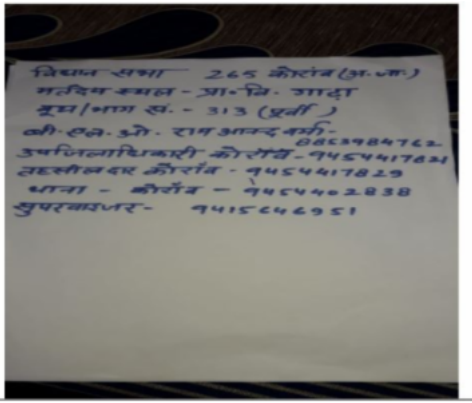 विधान सभा 265 कोरांव (अ.जा.)
मतदेय स्थल - प्रा॰ वि. गाढ़ा
बूथ/भाग सं. - 313 (पूर्वी)
बी. एल. ओ. राम आनन्द वर्मा -
8853984762
उपजिलाधिकारी कोराँव - 9454417821
तहसीलदार कोराँव - 9454417829
थाना - कोराँव - 9454402838
सुपरवाइजर - 9415646951